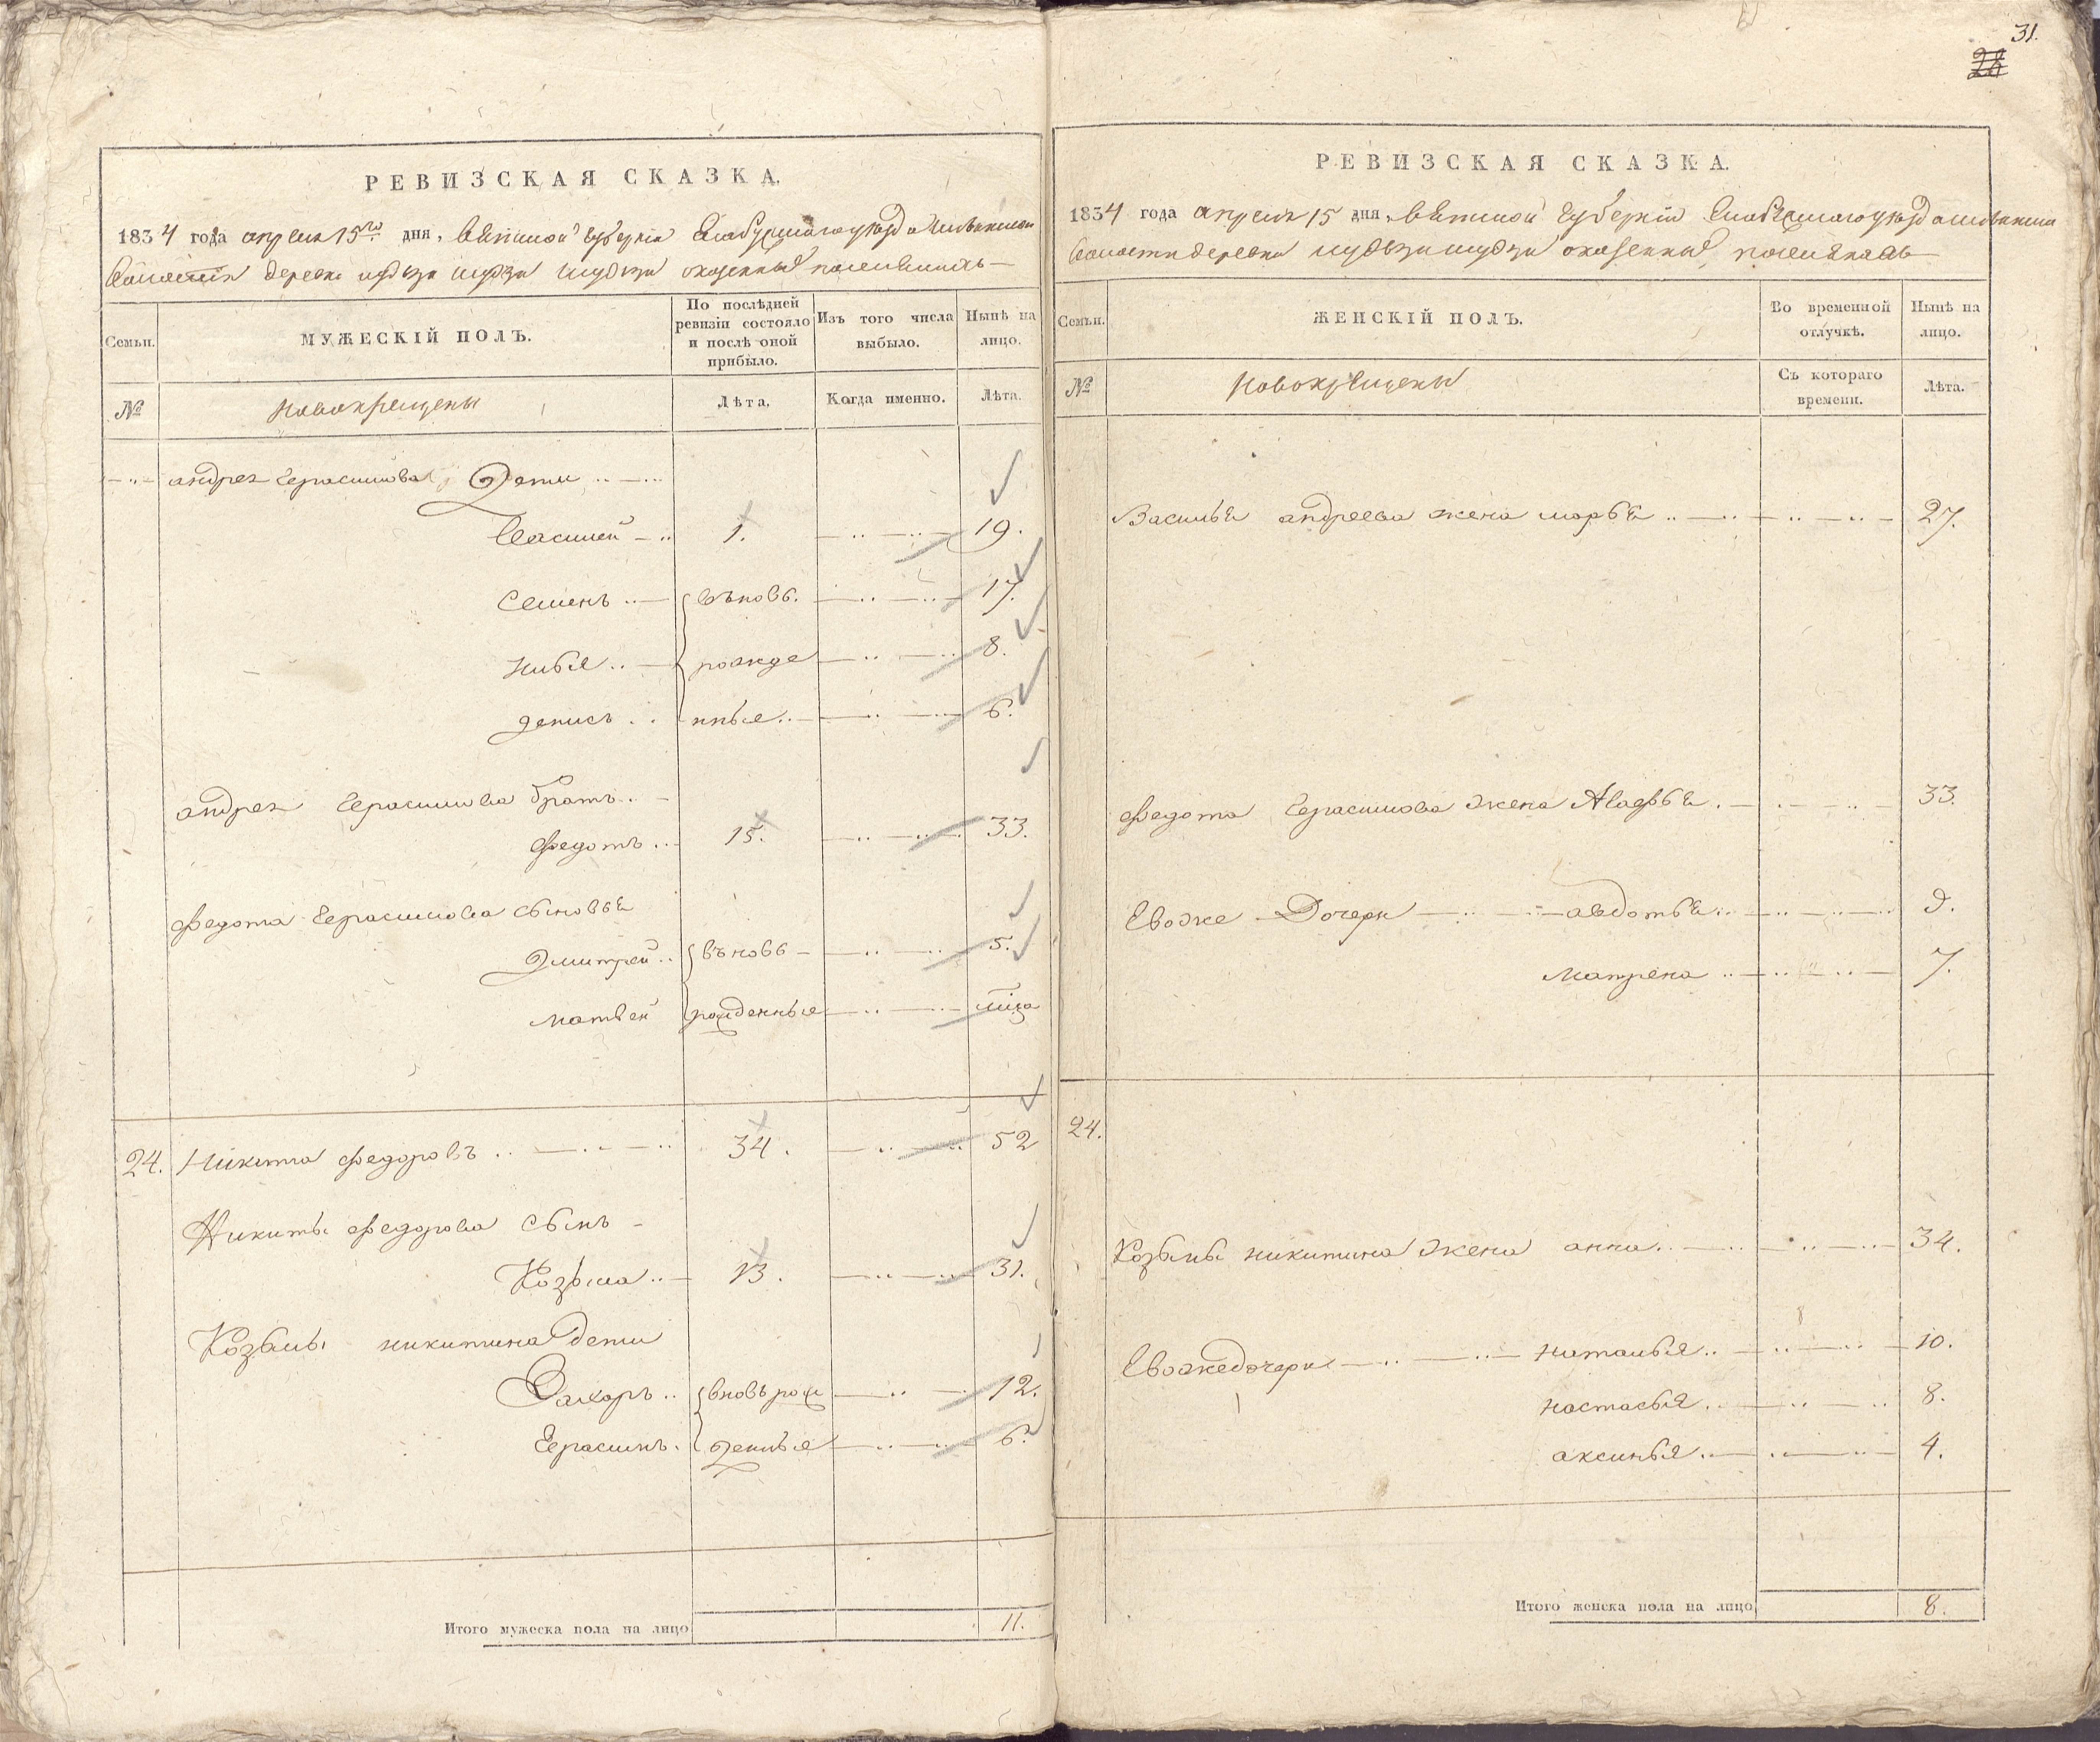 31.
28
РЕВИЗСКАЯ СКАЗКА.
1834 года апреля 15го дня, Вятской губернiи Елабужскаго уезда
волости деревни оказенныхъ поселянахъ
Семьи.
МУЖЕСКІЙ ПОЛЪ.
По послѣдней ревизіи состояло и послѣ оной прибыло.
Изъ того числа выбыло.
Нынѣ на лицо.
№
Новокрещены
Лѣта.
Когда именно.
Лѣта.
андрея Герасимова Дети
Василей 1. 19.
Семенъ вьновь. 17.
рожде 8.
денисъ нные 6.
андрея Герасимова братъ
Федотъ 15. 33.
Федота Герасимова сыновья
Дмитрей вьновь 5.
матвей рожденные
24. Никита Федоровъ 34. 52
Никиты Федорова сынъ
Козьма 13. 31.
Козьмы никитина дети
Захоръ вновь рож 12.
Герасимъ. денные 6.
Итого мужеска пола на лицо 11.
РЕВИЗСКАЯ СКАЗКА.
1834 года апреля 15 дня, Вятской Губернiи Елабужскаго уезда
волости деревни оказенныхъ поселянахъ
Семьи.
ЖЕНСКІЙ ПОЛЪ.
Во временной отлучкѣ.
Нынѣ на лицо.
№
Новокрещены
Съ котораго времени.
Лѣта.
Василья андреева жена марья 27.
Федота Герасимова жена Агафья 33.
Евоже Дочери авдотья 9.
матрена 7.
24.
Козьмы никитина жена анна 34.
Евоже дочери наталья 10.
настасья 8.
аксинья 4.
Итого женска пола на лицо 8.